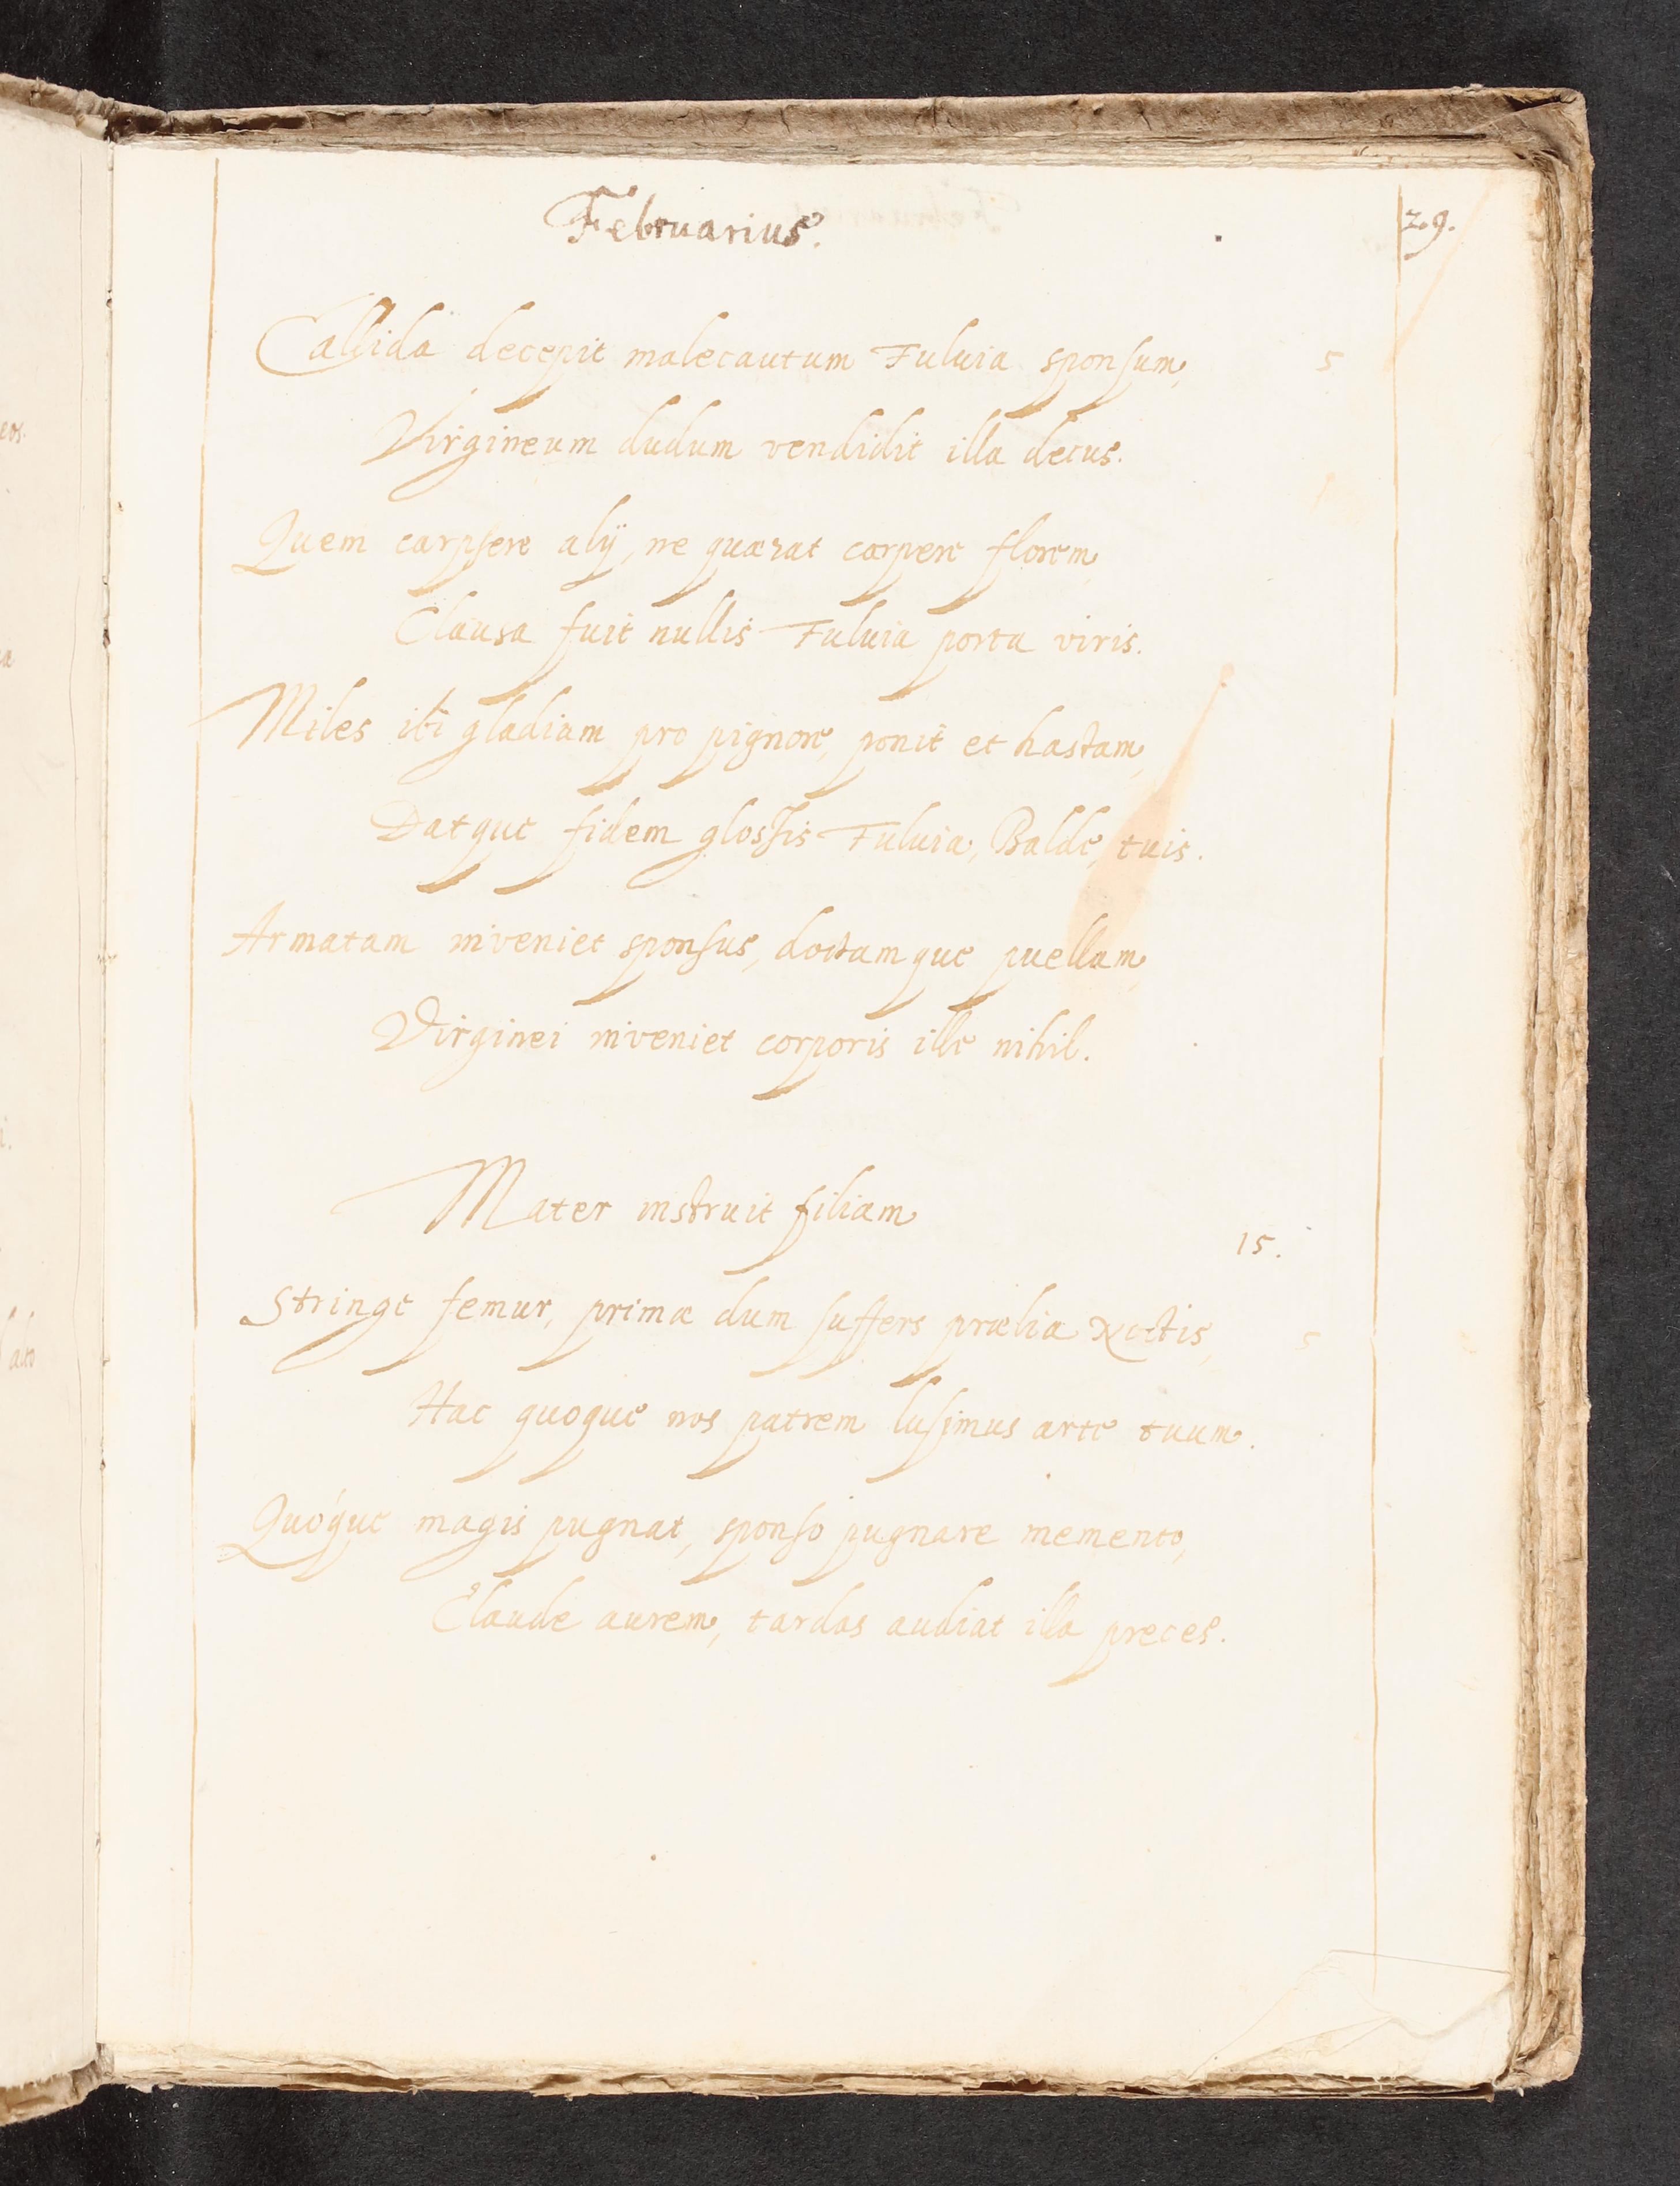 Februarius.
29.
Callida decepit malecautum Fuluia sponsum,
5
Virgineum dudum vendidit illa decus.
Quem carpsere alij, ne quærat carpere florem,
Clausa fuit nullis Fuluia porta viris.
Miles ibi gladium pro pignore, ponit et hastam,
Datque fidem glossis Fuluia, Balde tuis.
Armatam inveniet sponsus, doctamque puellam,
Virginei inveniet corporis ille nihil.
Mater instruit filiam
15.
Stringe femur, primæ dum suffers prælia noctis,
5
Hac quoque nos patrem lusimus arte tuum.
Quóque magis pugnat, sponso pugnare memento,
Claude aurem, tardas audiat illa preces.